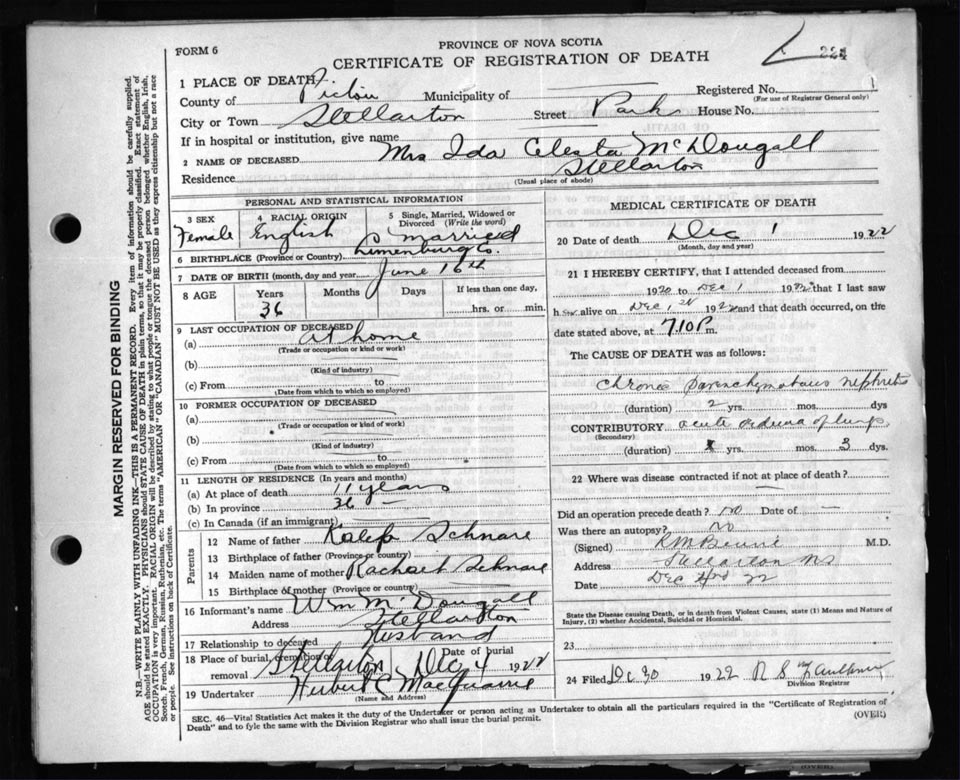 FORM 6
PROVINCE OF NOVA SCOTIA
CERTIFICATE OF REGISTRATION OF DEATH
224
1 PLACE OF DEATH
County of Pictou Municipality of Registered No.
(For use of Registrar General only)
City or Town Stellarton Street Park House No.
If in hospital or institution, give name
2 NAME OF DECEASED Mrs Ida Celesta McDougall
Residence Stellarton
(Usual place of abode)
PERSONAL AND STATISTICAL INFORMATION
3 SEX Female
4 RACIAL ORIGIN English
5 Single, Married, Widowed or Divorced (Write the word) married
6 BIRTHPLACE (Province or Country) Lunenburg Co.
7 DATE OF BIRTH (month, day and year) June 16th
8 AGE Years Months Days If less than one day,
36 hrs. or min.
9 LAST OCCUPATION OF DECEASED
(a) at home
(Trade or occupation or kind of work)
(b)
(Kind of industry)
(c) From to
(Date from which to which so employed)
10 FORMER OCCUPATION OF DECEASED
(a)
(Trade or occupation or kind of work)
(b)
(Kind of industry)
(c) From to
(Date from which to which so employed)
11 LENGTH OF RESIDENCE (In years and months)
(a) At place of death 11 years
(b) In province 36
(c) In Canada (if an immigrant)
Parents
12 Name of father Kaleb Schnare
13 Birthplace of father (Province or country)
14 Maiden name of mother Rachael Schnare
15 Birthplace of mother (Province or country)
16 Informant's name Wm McDougall
Address Stellarton
17 Relationship to deceased Husband
18 Place of burial, cremation or removal Stellarton Date of burial Dec 4 1922
19 Undertaker Hubert C MacQuarrie
(Name and Address)
MEDICAL CERTIFICATE OF DEATH
20 Date of death Dec 1 1922
(Month, day and year)
21 I HEREBY CERTIFY, that I attended deceased from
1920 to Dec 1 1922 that I last saw
h alive on Dec 1st 1922 and that death occurred, on the
date stated above, at 7.10 P m.
The CAUSE OF DEATH was as follows:
Chronic parenchymatous nephritis
(duration) 2 yrs. mos. dys
CONTRIBUTORY acute oedema of lungs
(Secondary)
(duration) yrs. mos. 3 dys
22 Where was disease contracted if not at place of death?
Did an operation precede death? No Date of —
Was there an autopsy? No
(Signed) M.D.
Address Stellarton NS
Date Dec 22
State the Disease causing Death, or in death from Violent Causes, state (1) Means and Nature of Injury, (2) whether Accidental, Suicidal or Homicidal.
23
24 Filed Dc 30 1922 R S
Division Registrar
SEC. 46—Vital Statistics Act makes it the duty of the Undertaker or person acting as Undertaker to obtain all the particulars required in the "Certificate of Registration of
Death" and to fyle the same with the Division Registrar who shall issue the burial permit.
(OVER)
MARGIN RESERVED FOR BINDING
N.B.—WRITE PLAINLY WITH UNFADING INK—THIS IS A PERMANENT RECORD. Every item of information should be carefully supplied.
AGE should be stated EXACTLY. PHYSICIANS should STATE CAUSE OF DEATH in plain terms, so that it may be properly classified. Exact statement of
OCCUPATION is very important. RACIAL ORIGIN will be described by stating to what people or tongue the deceased person belonged whether English, Irish,
Scotch, French, German, Russian, Ruthenian, etc. The terms "AMERICAN" OR "CANADIAN" MUST NOT BE USED as they express citizenship but not a race
or people. See instructions on back of Certificate.
(OVER)